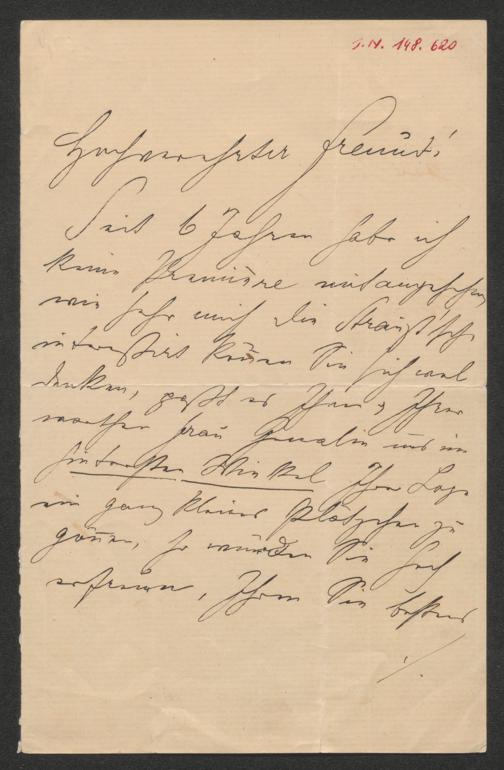 I.N. 148.620
Hochverehrter Freund!
Seit 6 Jahren habe ich
keine Premiére mitangesehen
wie sehr mich die Strauß'sche
interessirt können Sie sich wol
denken, paßt es Ihnen & Ihrer
werthen Frau Gemalin mir im
hintersten Winkel Ihrer Loge
ein ganz kleines Plätzchen zu
gönnen, so würden Sie hoch
erfreuen, Ihren Sie bestens
./.